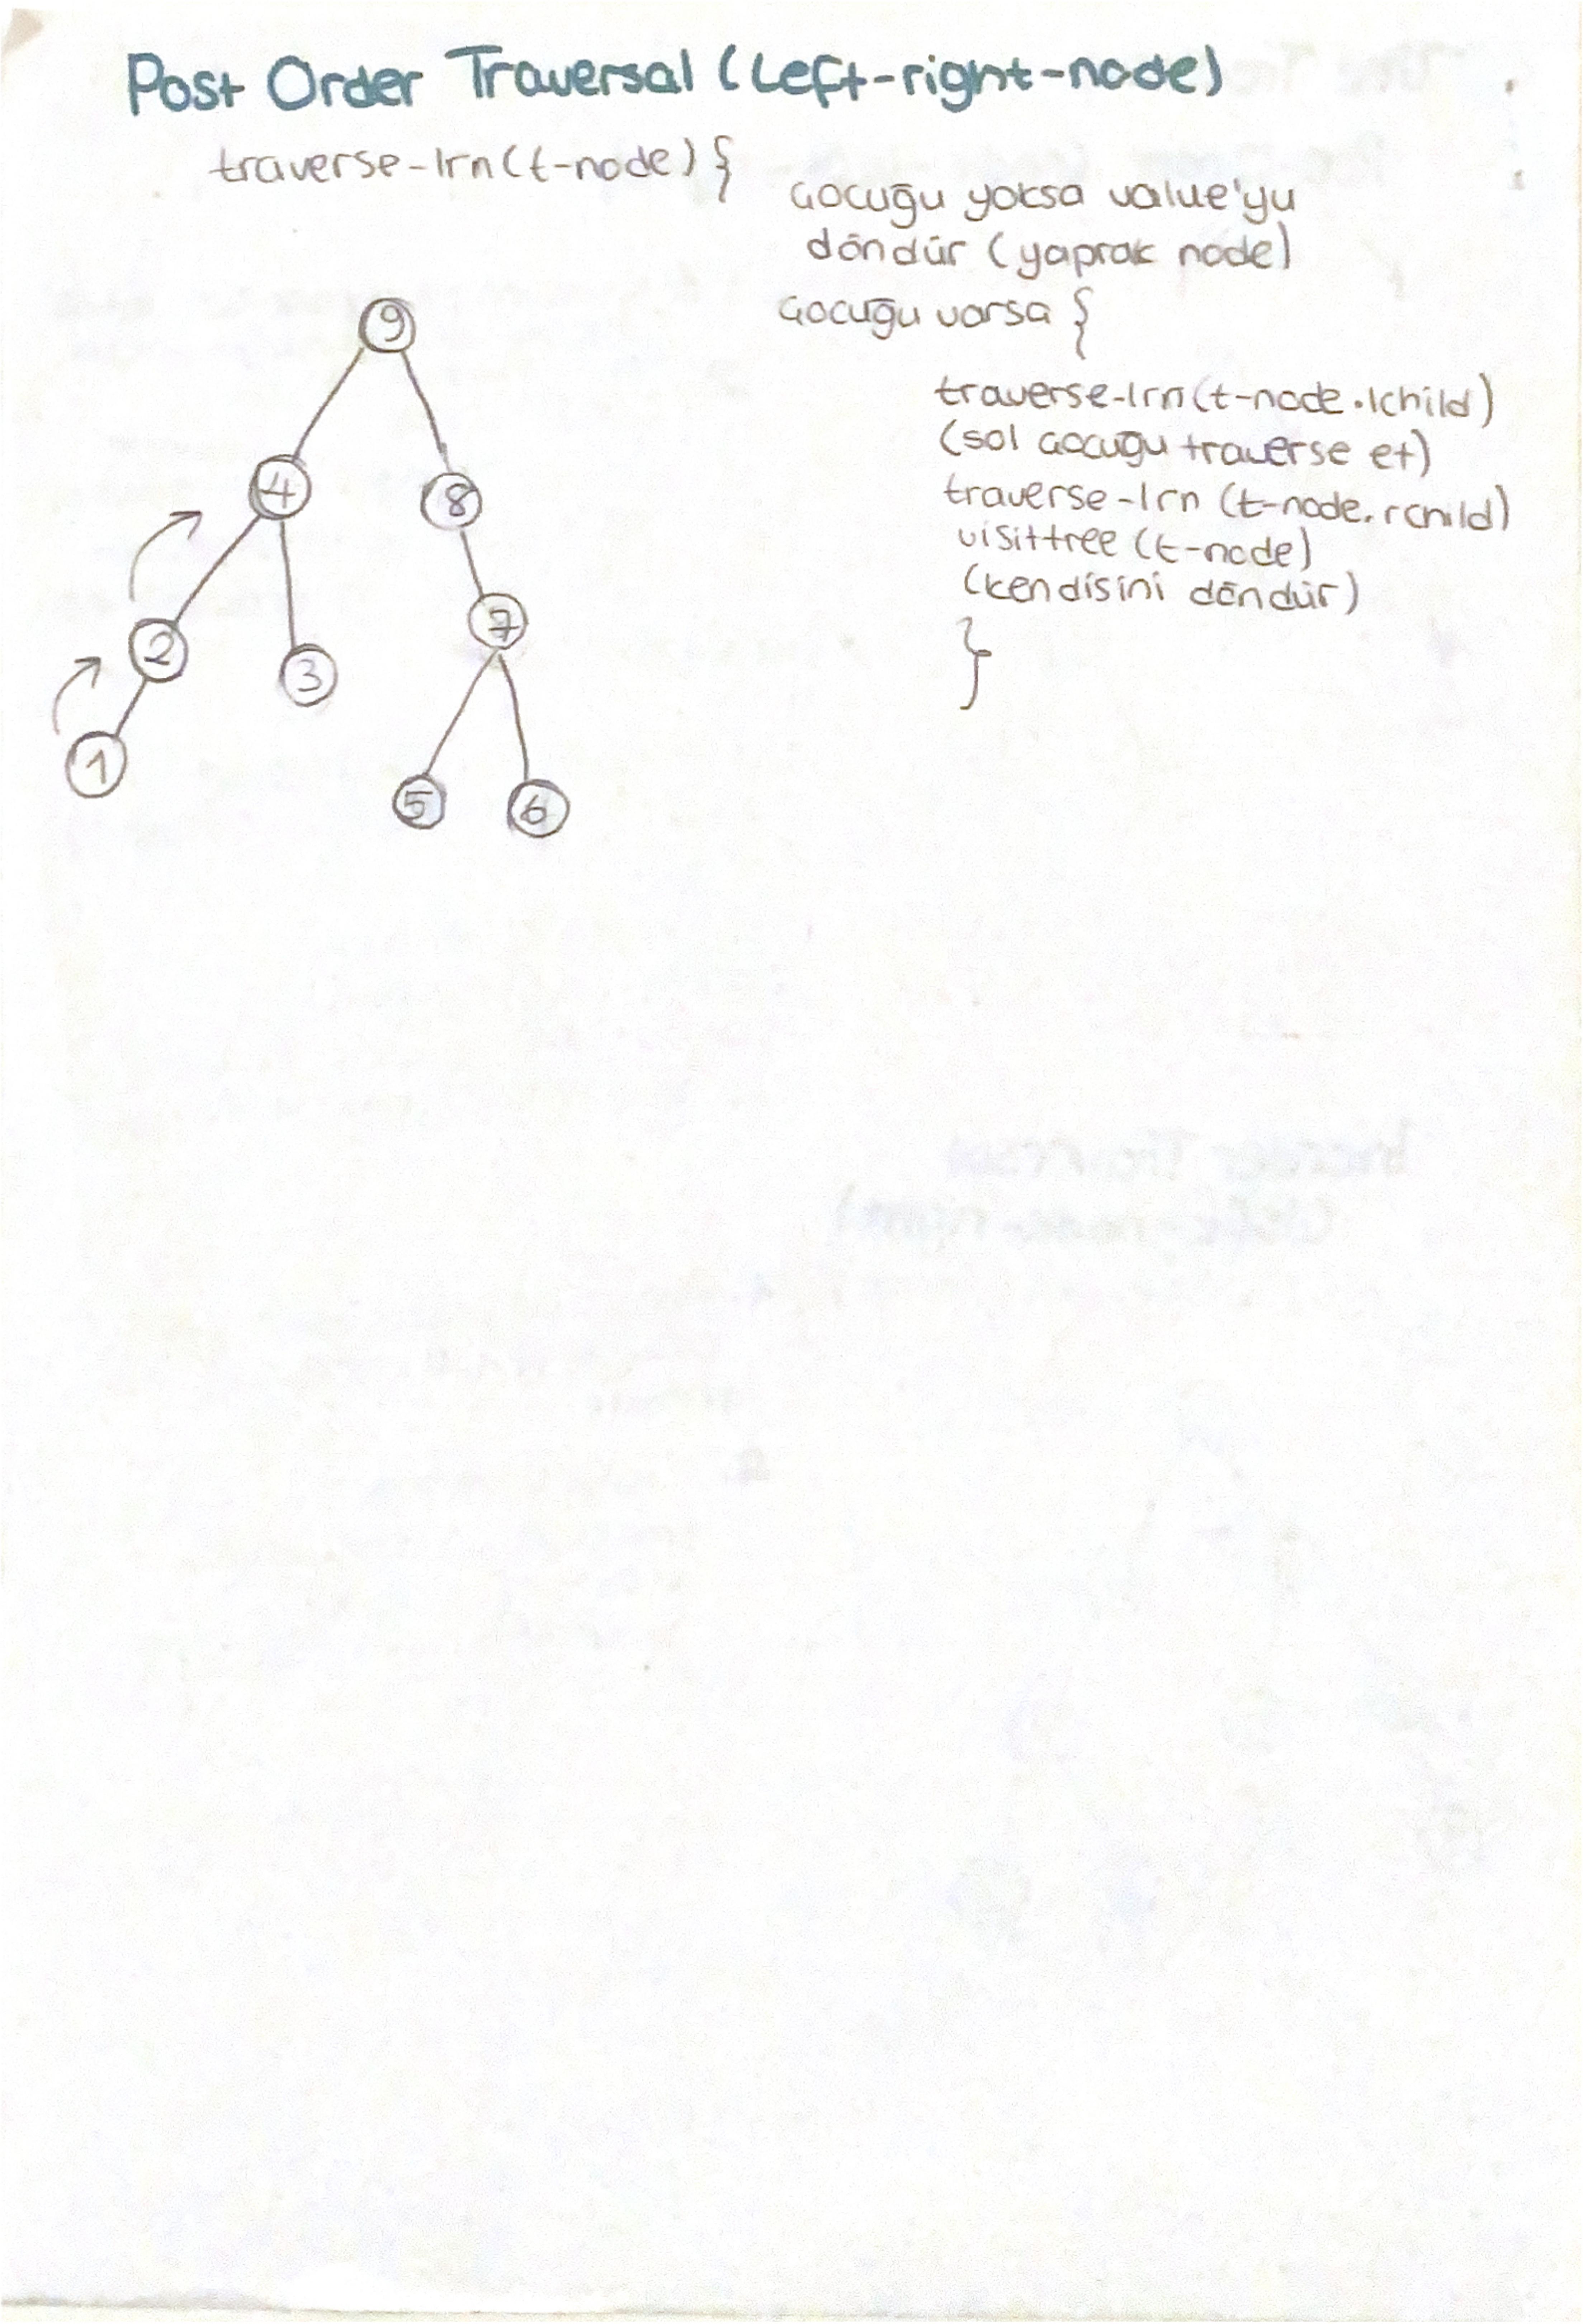 Post Order Traversal (Left-right-node)
traverse-lrn(t-node) {
Çocuğu yoksa value'yu
döndür (yaprak node)
Çocuğu varsa {
traverse-lrn(t-node.lchild)
(sol çocuğu traverse et)
traverse-lrn (t-node.rchild)
visittree (t-node)
(kendisini döndür)
}
9
4
8
2
3
7
1
5
6